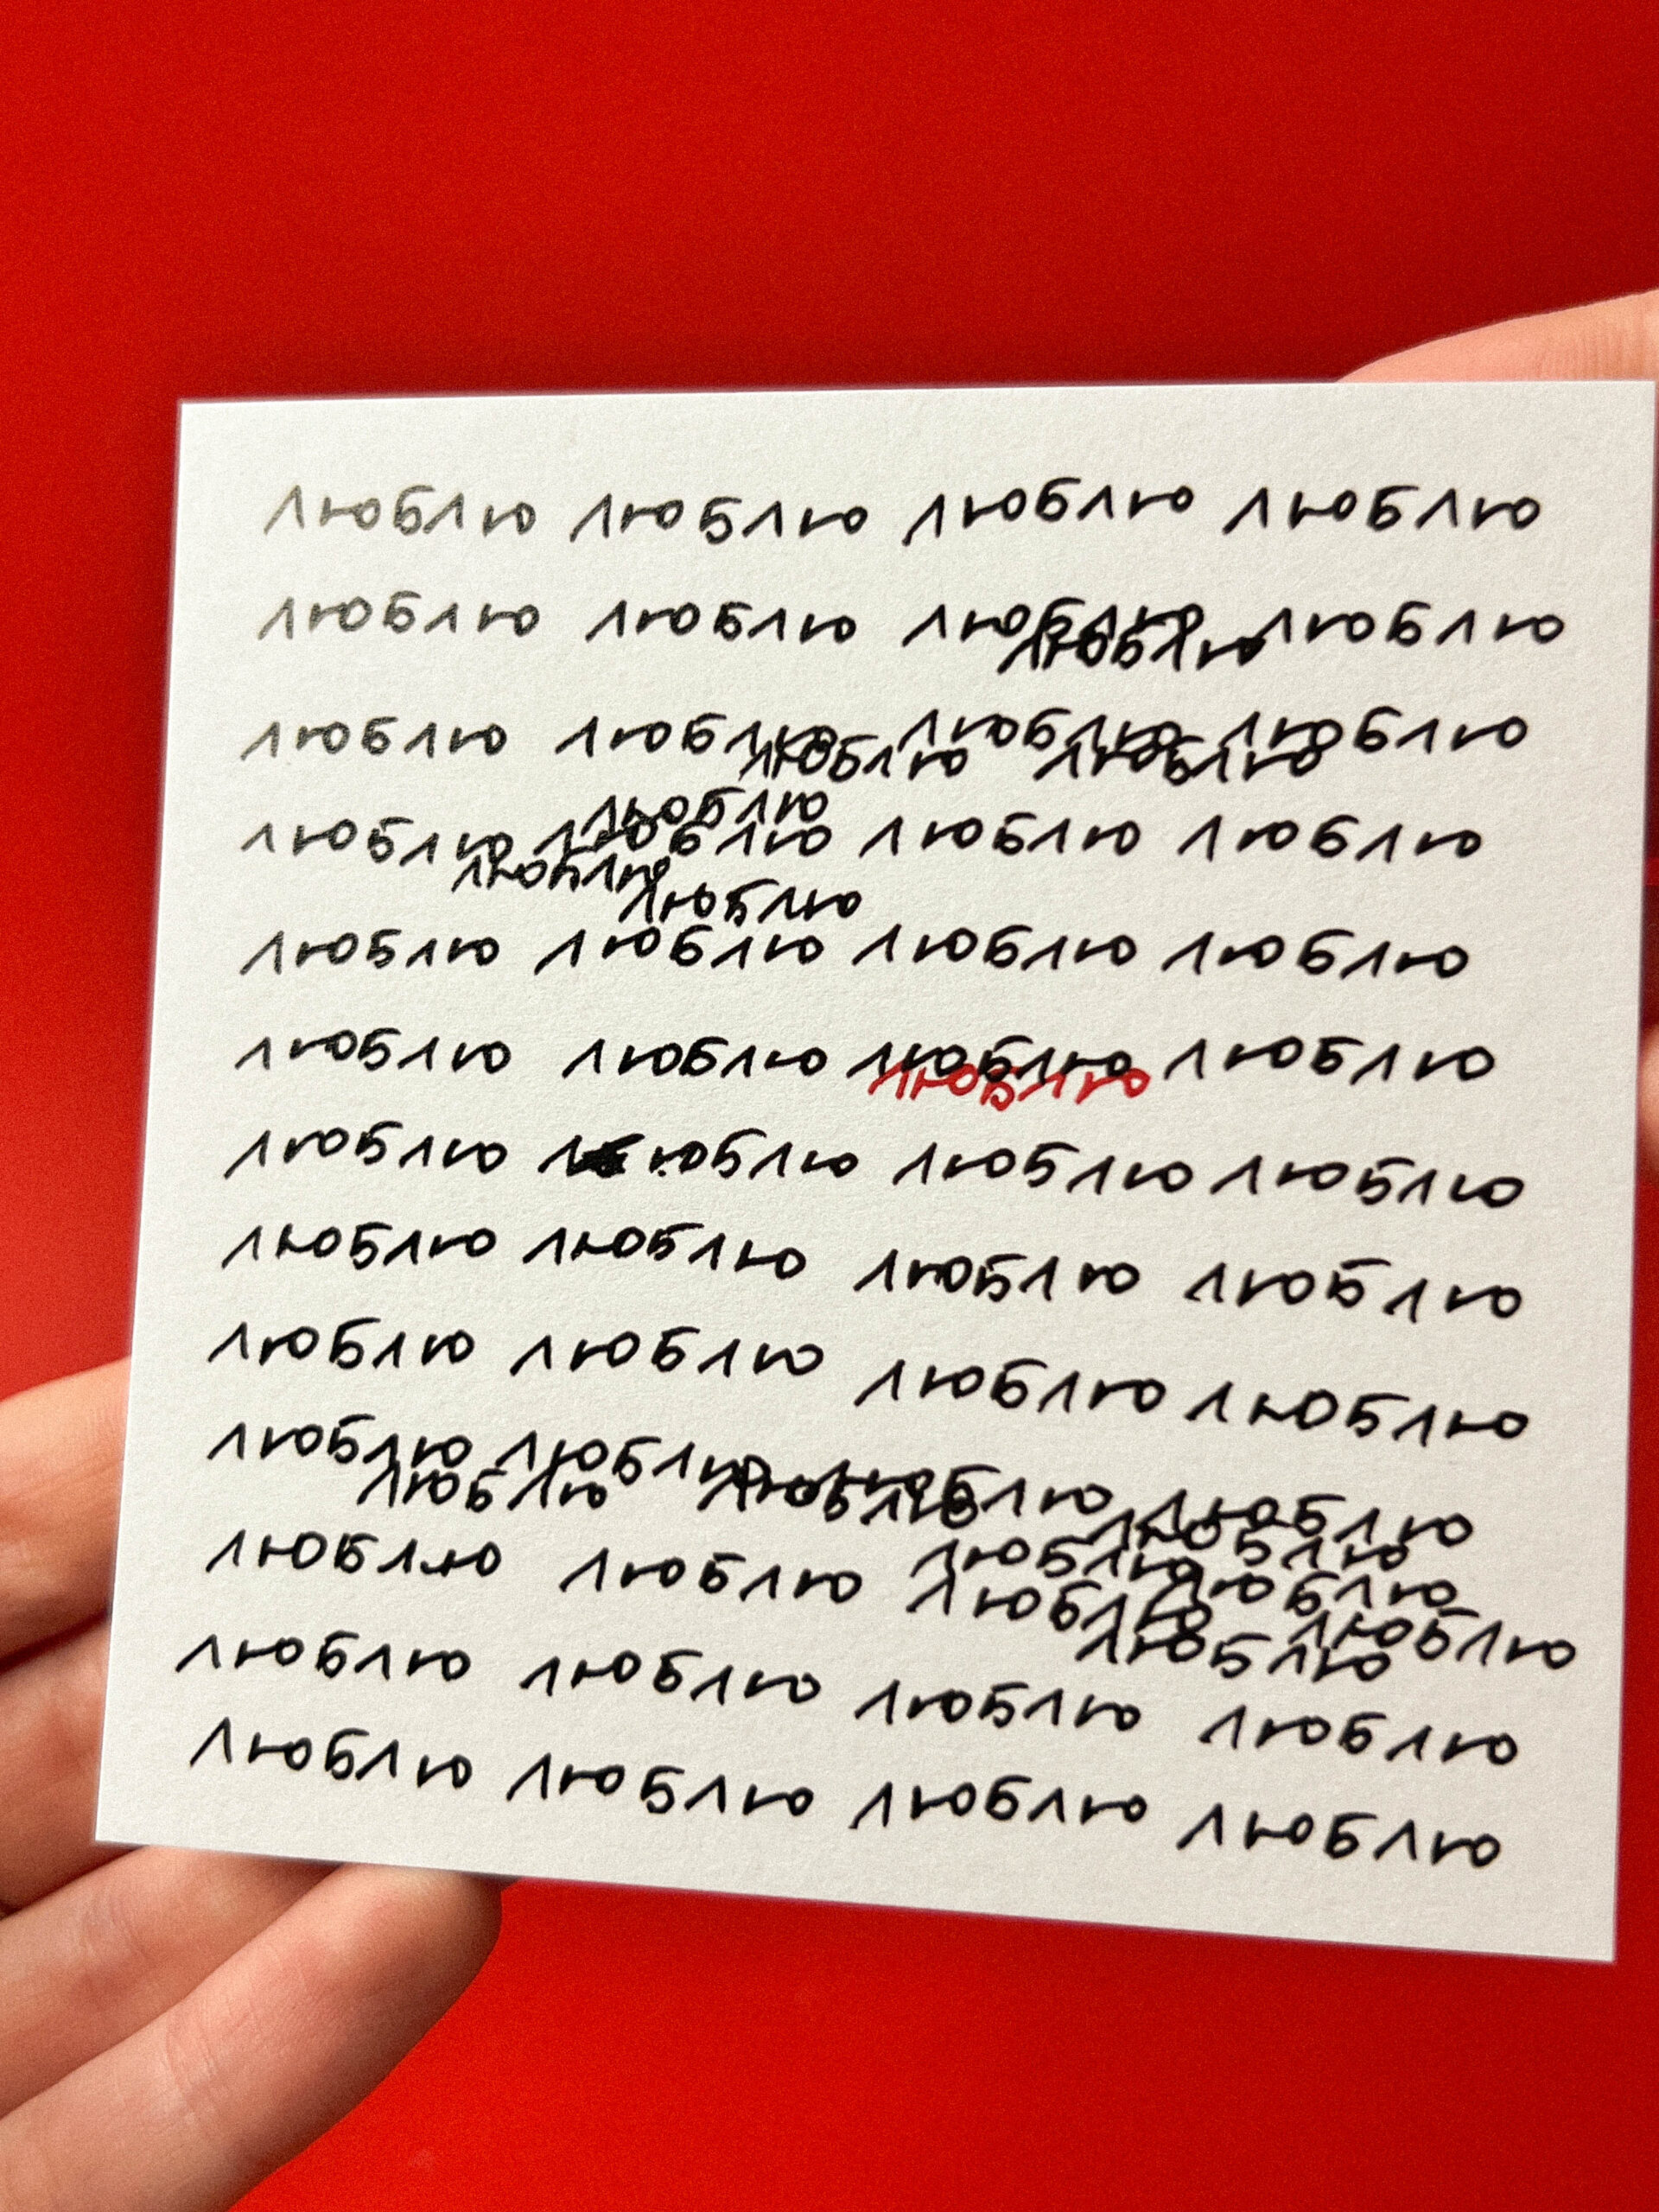 люблю люблю люблю люблю
люблю люблю люблю люблю
люблю
люблю люблю люблю люблю
люблю люблю
люблю
люблю люблю люблю люблю
люблю
люблю
люблю люблю люблю люблю
люблю люблю люблю люблю
люблю
люблю люблю люблю люблю
люблю люблю люблю люблю
люблю люблю люблю люблю
люблю люблю люблю люблю
люблю люблю люблю
люблю люблю люблю
люблю
люблю люблю
люблю
люблю люблю люблю люблю
люблю люблю люблю люблю